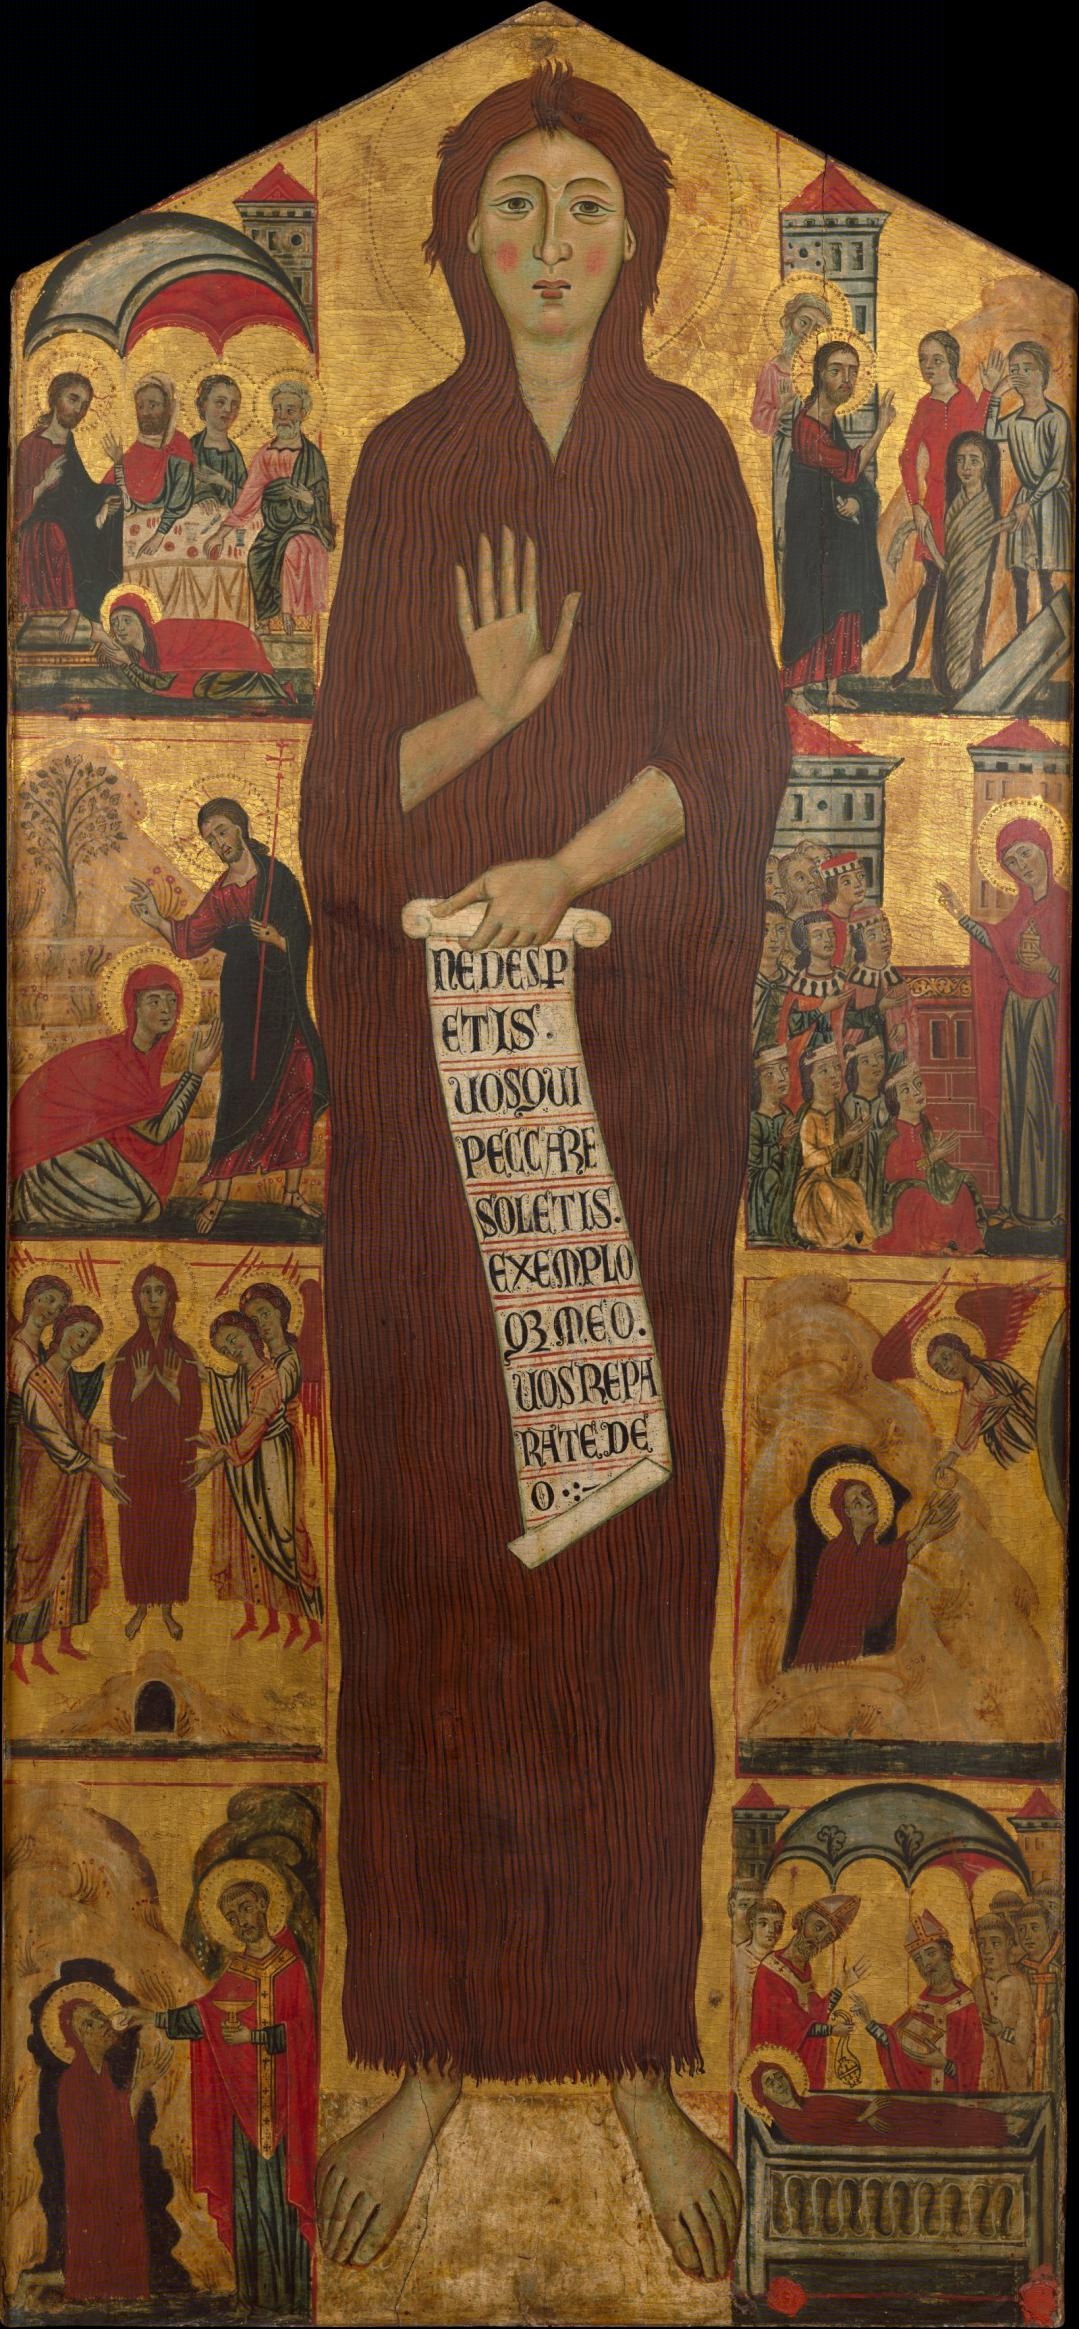 NE DESP
ETIS·
VOS QUI
PECCARE
SOLETIS.
EXEMPLO
QZ MEO.
VOS REPA
RATE DE
O